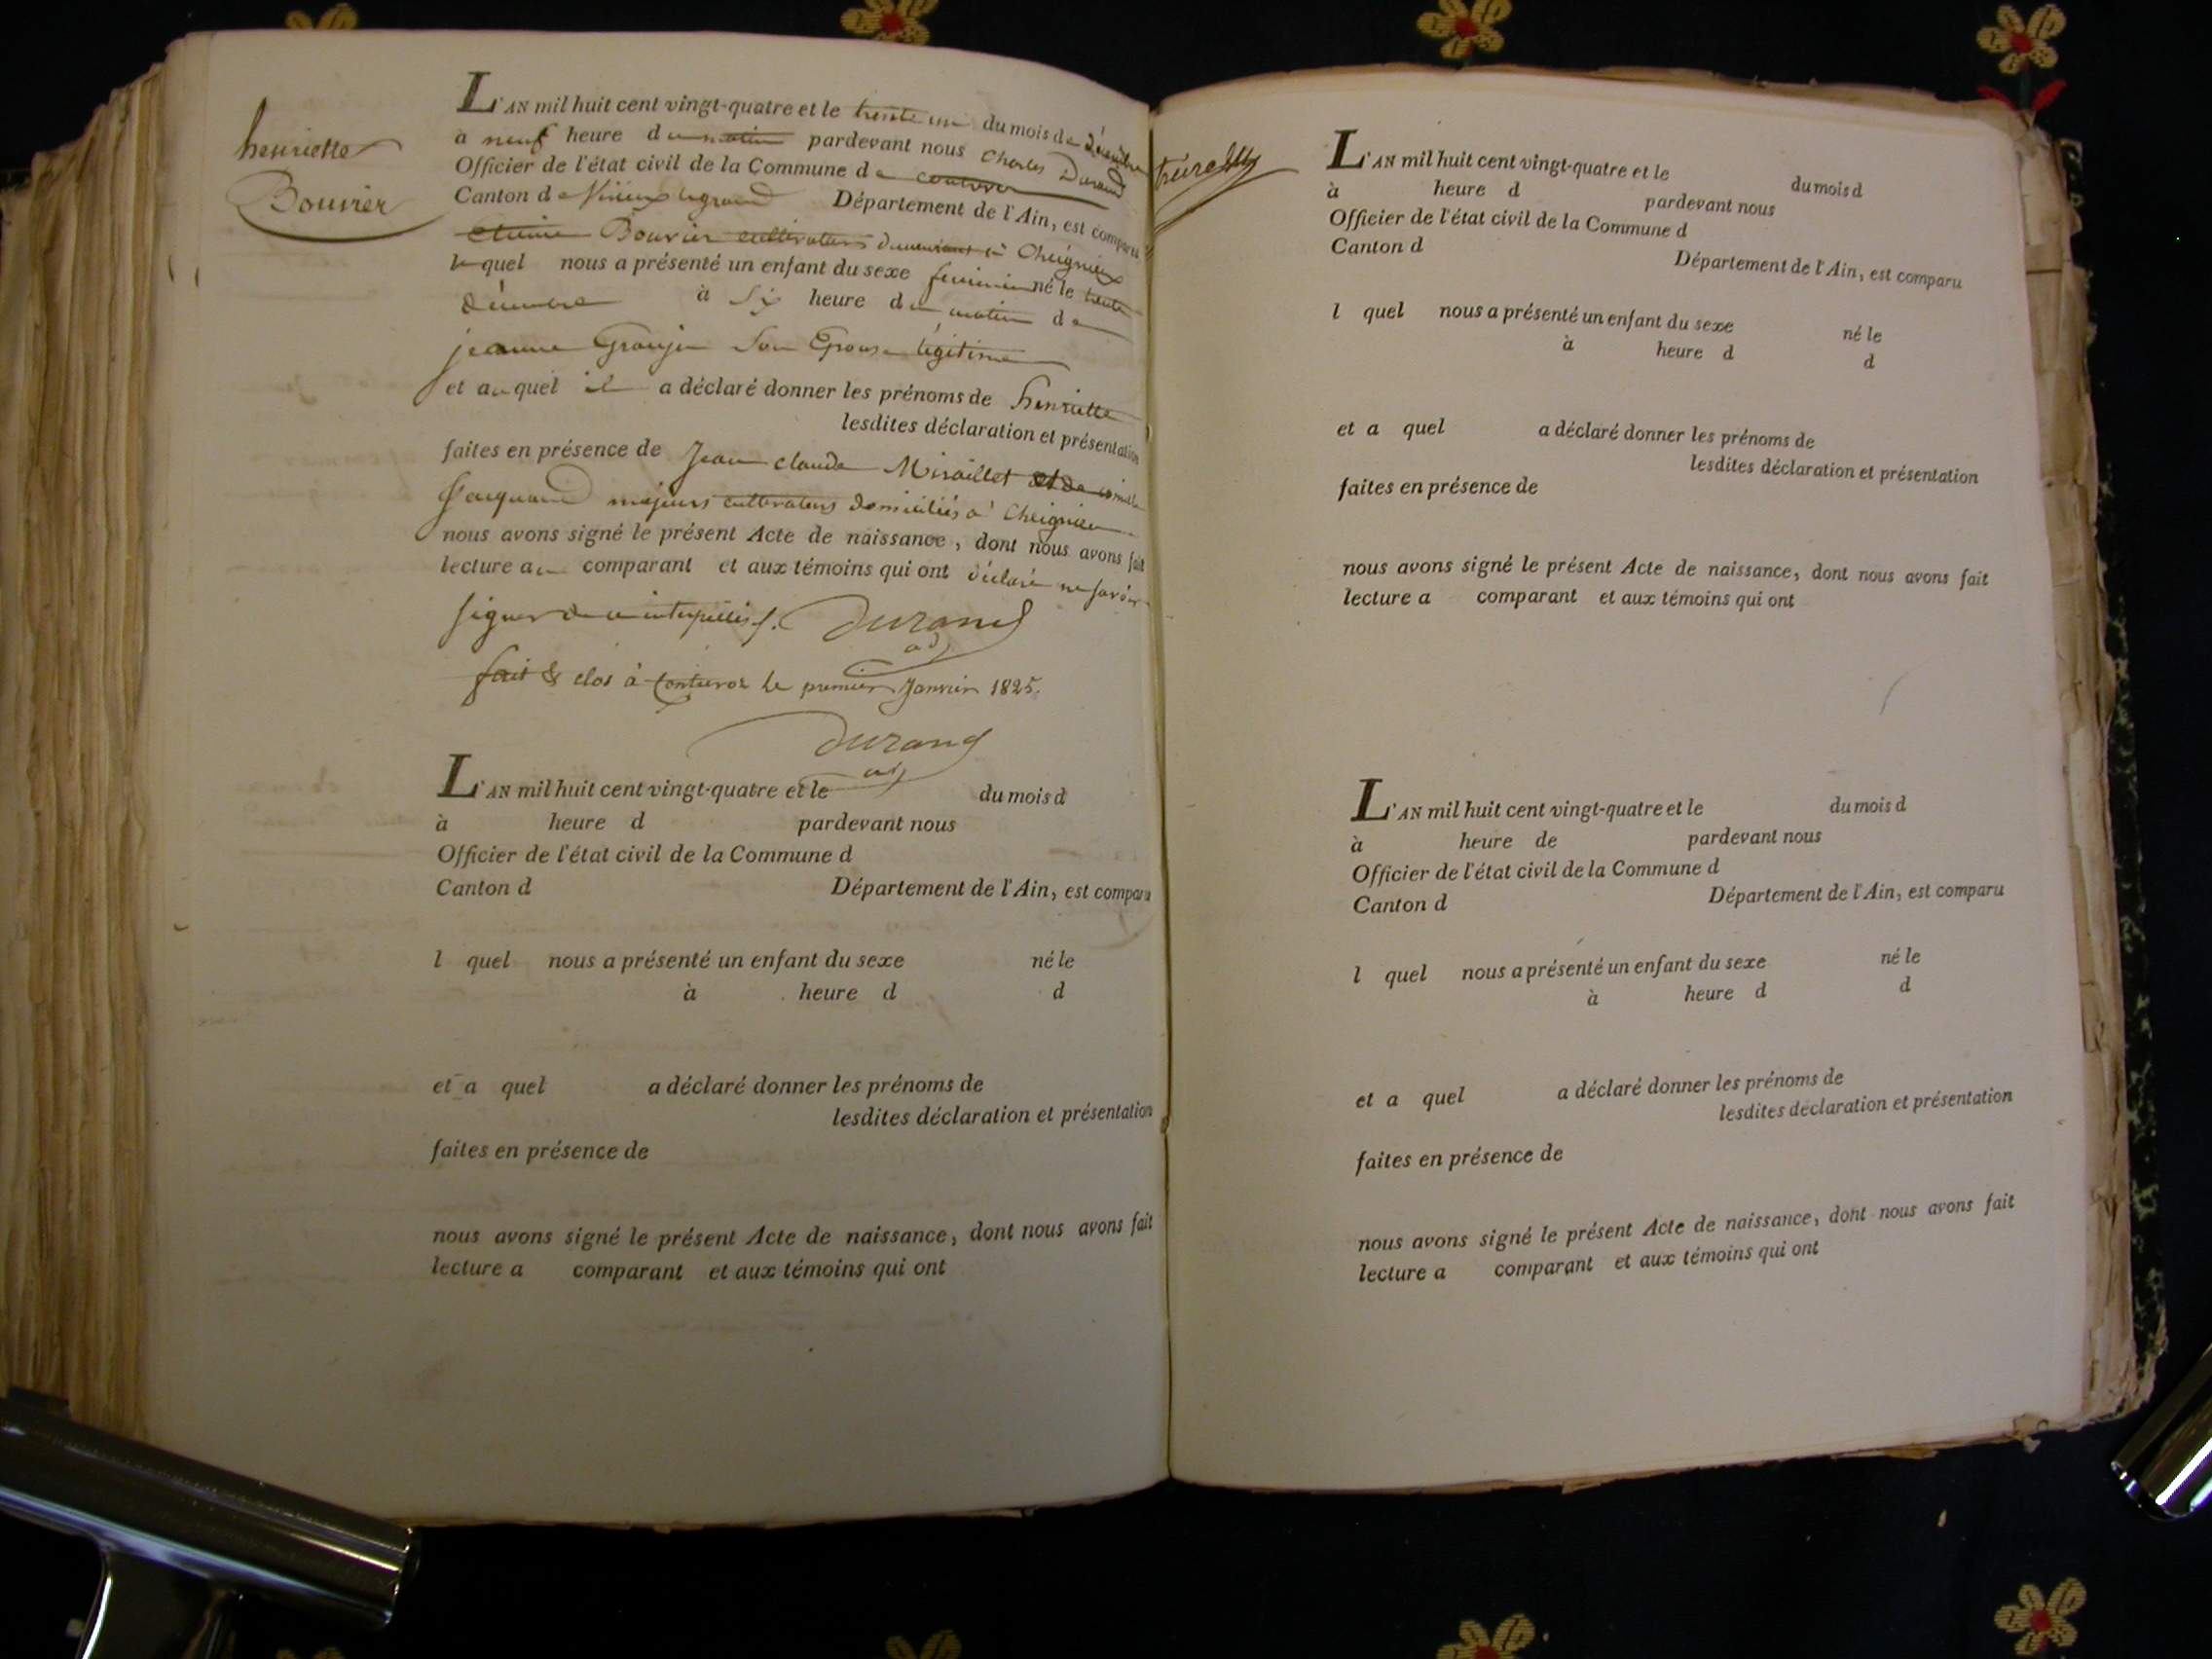 henriette
Bouvier
L'AN mil huit cent vingt-quatre et le trente un du mois de décembre
à neuf heure du matin pardevant nous Charles Durand
Officier de l'état civil de la Commune de
Canton de Virieux legrand Département de l'Ain, est comparu
Bouvier cultivateur demeurant à Cheignieu
lequel nous a présenté un enfant du sexe feminin né le trente
décembre à Six heure du matin de
jeanne Son Epouse légitime
et auquel il a déclaré donner les prénoms de henriette
lesdites déclaration et présentation
faites en présence de Jean claude Miraillet et de
Jacquand majeurs cultivateurs domiciliés à Cheignieu
nous avons signé le présent Acte de naissance, dont nous avons fait
lecture au comparant et aux témoins qui ont déclaré ne savoir
signer de ce interpellés. Durand
adj
fait & clos à le premier Janvier 1825.
Durand
adj
L'AN mil huit cent vingt-quatre et le du mois d
à heure d pardevant nous
Officier de l'état civil de la Commune d
Canton d Département de l'Ain, est comparu
l quel nous a présenté un enfant du sexe né le
à heure d d
et a quel a déclaré donner les prénoms de
lesdites déclaration et présentation
faites en présence de
nous avons signé le présent Acte de naissance, dont nous avons fait
lecture a comparant et aux témoins qui ont
L'AN mil huit cent vingt-quatre et le du mois d
à heure d pardevant nous
Officier de l'état civil de la Commune d
Canton d Département de l'Ain, est comparu
l quel nous a présenté un enfant du sexe né le
à heure d d
et a quel a déclaré donner les prénoms de
lesdites déclaration et présentation
faites en présence de
nous avons signé le présent Acte de naissance, dont nous avons fait
lecture a comparant et aux témoins qui ont
L'AN mil huit cent vingt-quatre et le du mois d
à heure de pardevant nous
Officier de l'état civil de la Commune d
Canton d Département de l'Ain, est comparu
l quel nous a présenté un enfant du sexe né le
à heure d d
et a quel a déclaré donner les prénoms de
lesdites déclaration et présentation
faites en présence de
nous avons signé le présent Acte de naissance, dont nous avons fait
lecture a comparant et aux témoins qui ont